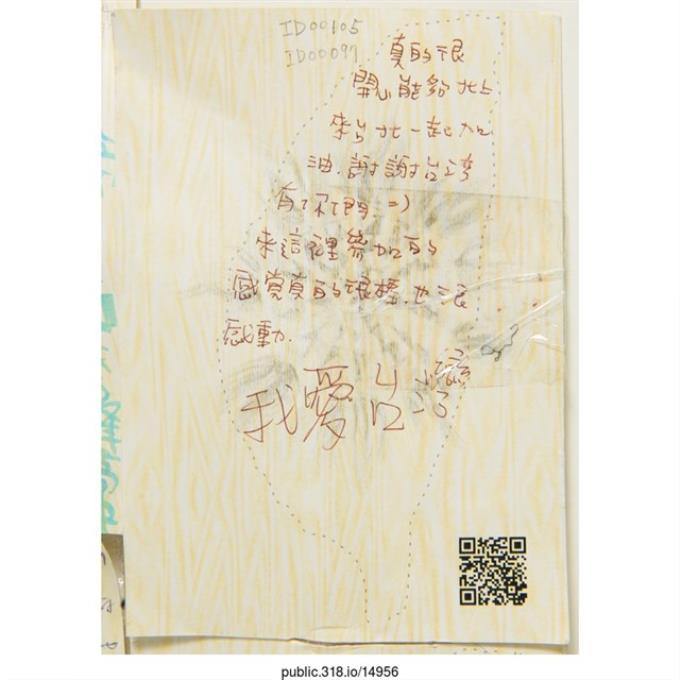 ID00105
ID00097
真的很
開心能夠北上
來台北一起加
油.謝謝台灣
有你們 =)
來這裡參加的
感覺真的很棒.也很
感動.
我愛台灣
public.318.io/14956